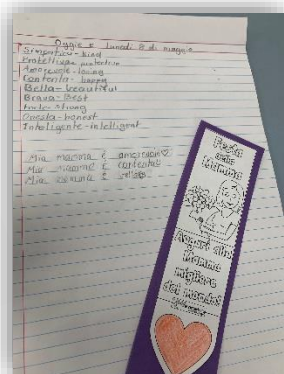 Oggi è lunedì 8 di maggio
Simpatica - kind
Protettiva - protective
Amorevole - loving
Contenta - happy
Bella - beautiful
Brava - Best
Forte - strong
Onesta - honest
Intelligente - intelligent
Mia mamma è amorevole
Mia mamma è contenta
Mia mamma è bella
Festa
della
Mamma
Auguri alla
Mamma
migliore
del mondo!